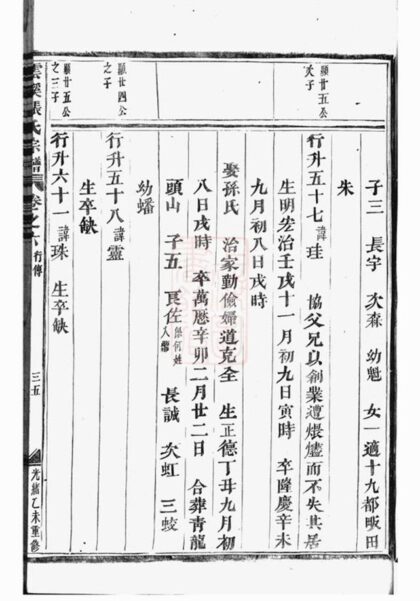 子三 長宇 次森 幼魁 女一適十九都畈田
朱
顯廿五公
次子
行升五十七諱珪 協父兄以創業遭煨燼而不失其居
生明宏治壬戌十一月初九日寅時 卒隆慶辛未
九月初八日戌時
娶孫氏 治家勤儉婦道克全 生正德丁丑九月初
八日戌時 卒萬曆辛卯二月廿二日 合葬青龍
頭山 子五 良佐係何姓入繼 長誠 次虹 三蛟
幼蟠
顯廿四公
之子
行升五十八諱靈
生卒缺
顯廿五公
之三子
行升六十一諱珠 生卒缺
雲溪張氏宗譜 卷之六 行傳 三五 光緒乙未重修